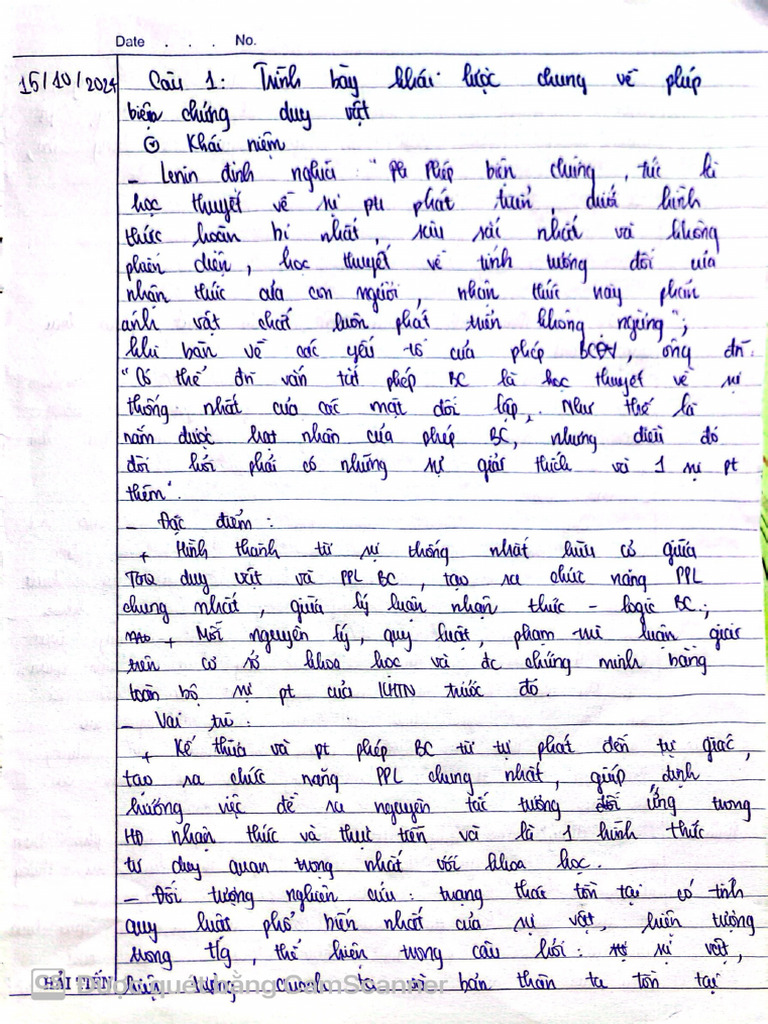 Date . . . No.
15/10/2024 Câu 1: Trình bày khái lược chung về phép
biện chứng duy vật
Khái niệm
- Lenin định nghĩa "Phép biện chứng, tức là
học thuyết về sự phát triển, dưới hình
thức hoàn bị nhất, sâu sắc nhất và không
phiến diện, học thuyết về tính tương đối của
nhận thức của con người, nhận thức này phản
ánh vật chất luôn phát triển không ngừng";
khi bàn về các yếu tố của phép BCDV, ông đn:
"Có thể đn vắn tắt phép BC là học thuyết về sự
thống nhất của các mặt đối lập. Như thế là
nắm được hạt nhân của phép BC, nhưng điều đó
đòi hỏi phải có những sự giải thích và 1 sự pt
thêm".
- Đặc điểm:
+ Hình thành từ sự thống nhất hữu cơ giữa
TGQ duy vật và PPL BC, tạo ra chức năng PPL
chung nhất, giữa lý luận nhận thức - logic BC;
+ Mỗi nguyên lý, quy luật, phạm trù luận giải
trên cơ sở khoa học và đc chứng minh bằng
toàn bộ sự pt của KHTN trước đó
- Vai trò:
+ Kế thừa và pt phép BC từ tự phát đến tự giác,
tạo ra chức năng PPL chung nhất, giúp định
hướng việc đề ra nguyên tắc tương ứng trong
HĐ nhận thức và thực tiễn và là 1 hình thức
tư duy quan trọng nhất với khoa học.
- Đối tượng nghiên cứu: trạng thái tồn tại có tính
quy luật phổ biến nhất của sự vật, hiện tượng
trong t/g, thể hiện trong câu hỏi: sự vật,
hiện tượng quanh ta và bản thân ta tồn tại
HẢI TIẾN
Được quét bằng CamScanner